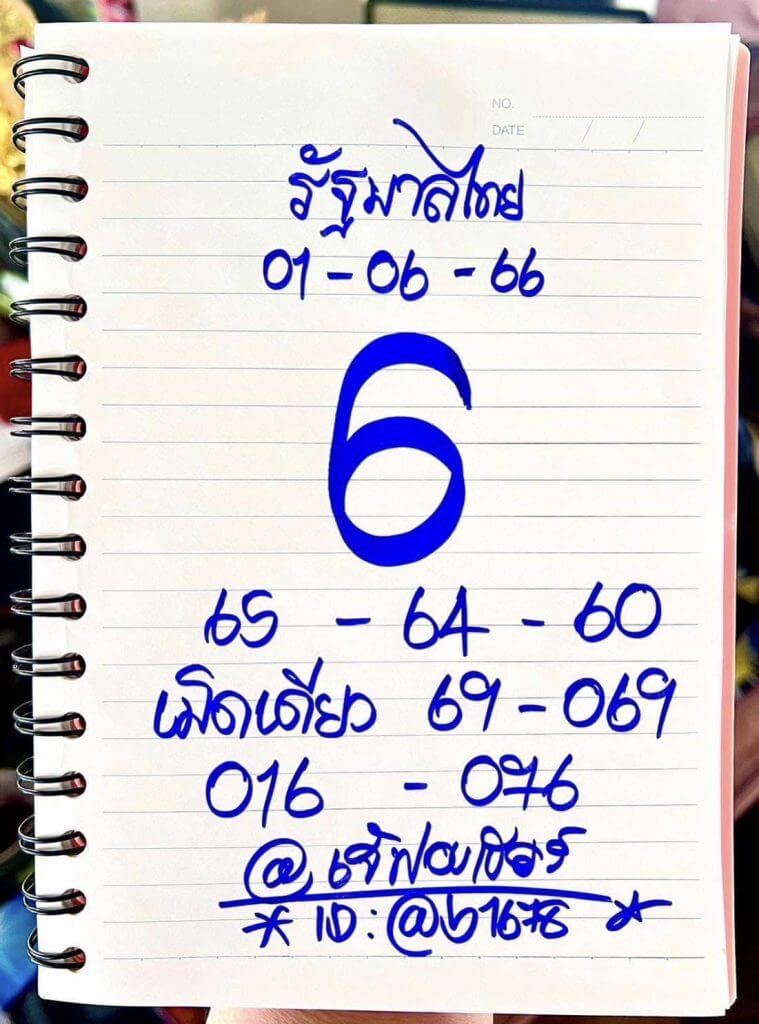 NO.
DATE / /
รัฐบาลไทย
01-06-66
6
65 - 64 - 60
เม็ดเดียว 69-069
016 - 076
@
* ID: @b1678 *